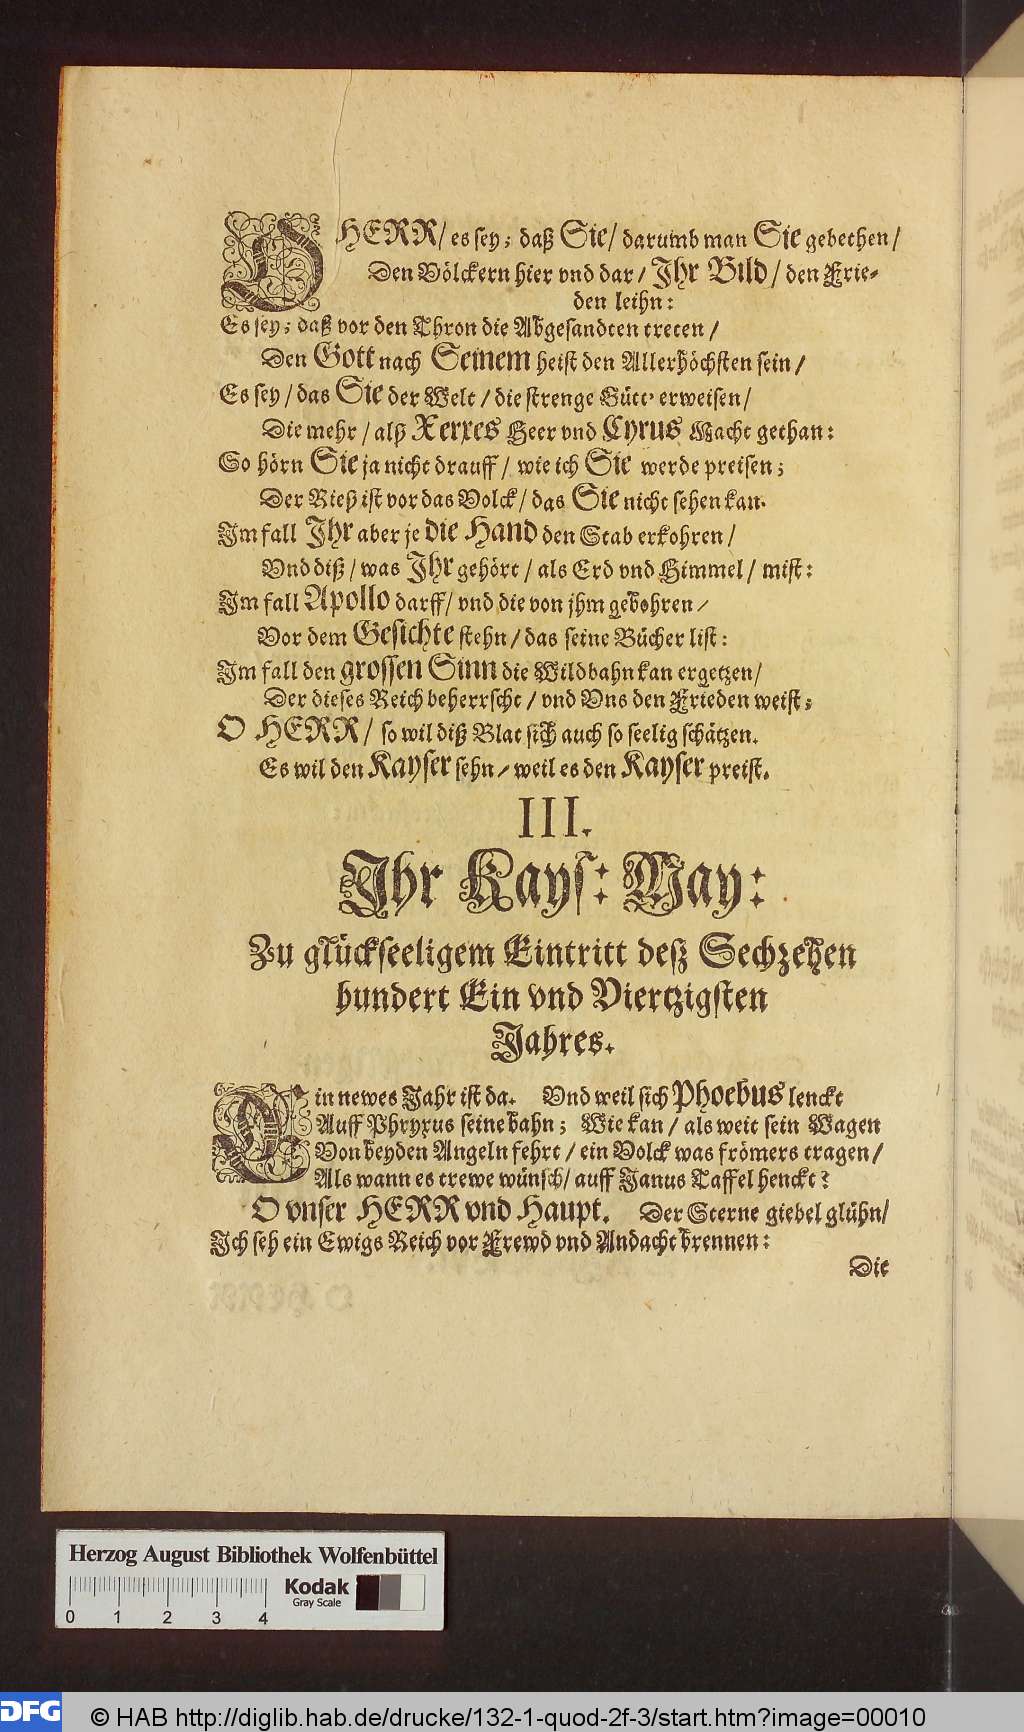 O HERR/ es sey; daß Sie/ darumb man Sie gebethen/
Den Völckern hier vnd dar/ Ihr Bild/ den Frie-
den leihn:
Es sey; daß vor den Thron die Abgesandten treten/
Den Gott nach Seinem heist den Allerhöchsten sein/
Es sey/ das Sie der Welt/ die strenge Gütt' erweisen/
Die mehr/ alß Xerxes Heer vnd Cyrus Macht gethan:
So hörn Sie ja nicht drauff/ wie ich Sie werde preisen;
Der Rieß ist vor das Volck/ das Sie nicht sehen kan.
Im fall Ihr aber je die Hand den Stab erkohren/
Vnd diß/ was Ihr gehört/ als Erd vnd Himmel/ mist:
Im fall Apollo darff/ vnd die von jhm gebohren/
Vor dem Gesichte stehn/ das seine Bücher list:
Im fall den grossen Sinn die Wildbahn kan ergetzen/
Der dieses Reich beherrscht/ vnd Vns den Frieden weist;
O HERR/ so wil diß Blat sich auch so seelig schätzen.
Es wil den Kayser sehn/ weil es den Kayser preist.
III.
Ihr Kays: May:
Zu glückseeligem Eintritt deß Sechzehen
hundert Ein vnd Viertzigsten
Jahres.
Ein newes Jahr ist da. Vnd weil sich Phoebus lenckt
Auff Phryxus seine bahn; Wie kan/ als weit sein Wagen
Von beyden Angeln fehrt/ ein Volck was frömers tragen/
Als wann es trewe wünsch/ auff Janus Taffel henckt?
O vnser HERR vnd Haupt. Der Sterne giebel glühn/
Ich seh ein Ewigs Reich vor Frewd vnd Andacht brennen:
Die
Herzog August Bibliothek Wolfenbüttel
Kodak
Gray Scale
0 1 2 3 4
DFG © HAB http://diglib.hab.de/drucke/132-1-quod-2f-3/start.htm?image=00010